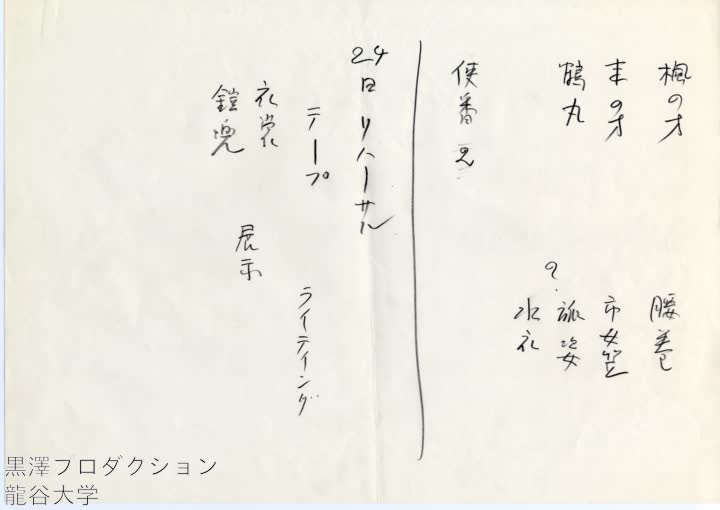 楓の方　腰巻
末の方　市女笠
鶴丸　？狐姿
水衣
24日 リハーサル
テープ　ライティング
衣裳　展示
鎧兜
黒澤プロダクション
龍谷大学